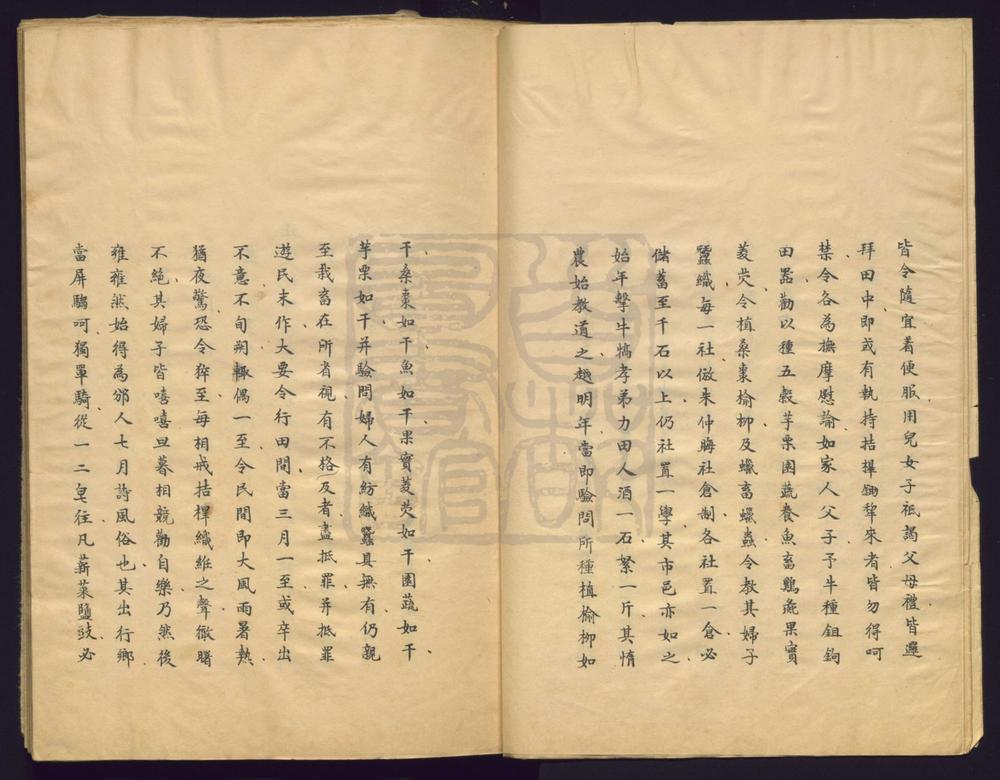 皆令隨宜着便服用兒女子祗謁父母禮皆邏
拜田中即或有執持桔槔鋤犂來者皆勿得呵
禁令各為撫摩慰諭如家人父子予牛種鉏鉤
田器勸以種五穀芋栗園蔬養魚畜鷄彘果實
菱芡令植桑棗榆柳及蠟畜蠟蟲令教其婦子
蠶織每一社倣朱仲晦社倉制各社置一倉必
儲蓄至千石以上仍社置一學其市邑亦如之
始年擊牛犒孝弟力田人酒一石絮一斤其惰
農始教道之越明年當即驗問所種植榆柳如
干桑棗如干魚如干果實菱芡如干園蔬如干
芋栗如干并驗問婦人有紡織蠶具無有仍親
至栽畜在所省視有不格及者盡抵罪并抵罪
遊民末作大要令行田間當三月一至或卒出
不意不旬朔輒偶一至令民間即大風雨暑熱
猶夜驚恐令猝至每相戒桔槔織維之聲徹曙
不絕其婦子皆嘻嘻旦暮相競勸自樂乃然後
雍雍然始得為邠人七月詩風俗也其出行鄉
當屏騶呵獨單騎從一二皂往凡薪菜鹽豉必